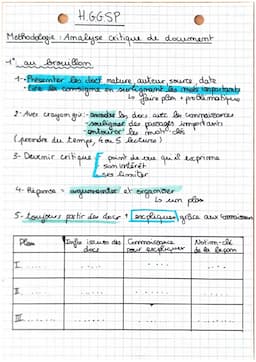 H.G.G.SP
Méthodologie : Analyse critique de document
-1° au brouillon
1- - Présenter les doct nature, auteur, source, date
- Lire la consigne en surlignant les mots importants
↳ faire plan + problématique
2- Avec crayon gris : - annoter les docs avec les connaissances
- souligner des passages importants
- entourer les mots-clés
(prendre du temps, 4 ou 5 lectures)
3- Devenir critique point de vue qu'il exprime
son intérêt
ses limites
4- Réponse = argumenter et organiser
↳ un plan
5- toujours partir des docs + expliquer grâce aux connaissances
Plan
Infos issues des docs
Connaissance pour expliquer
Notion-clé de la leçon
I
II
III